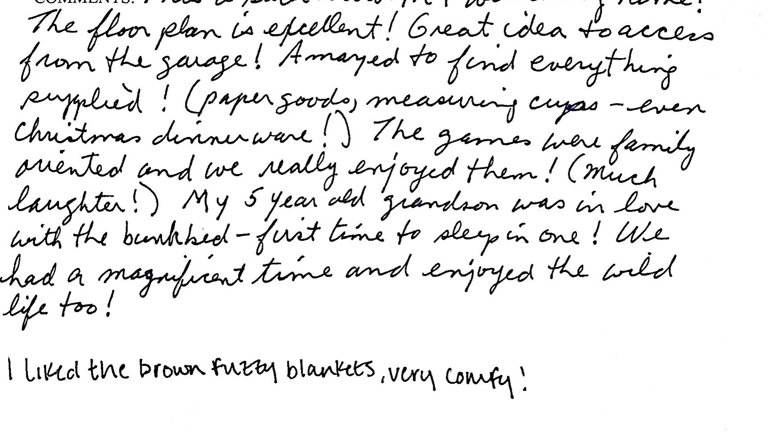 COMMENTS:
The floor plan is excellent! Great idea to access
from the garage! Amazed to find everything
supplied! (paper goods, measuring cups - even
Christmas dinnerware!) The games were family
oriented and we really enjoyed them! (Much
laughter!) My 5 year old grandson was in love
with the bunkbed - first time to sleep in one! We
had a magnificent time and enjoyed the wild
life too!
I liked the brown fuzzy blankets, very comfy!